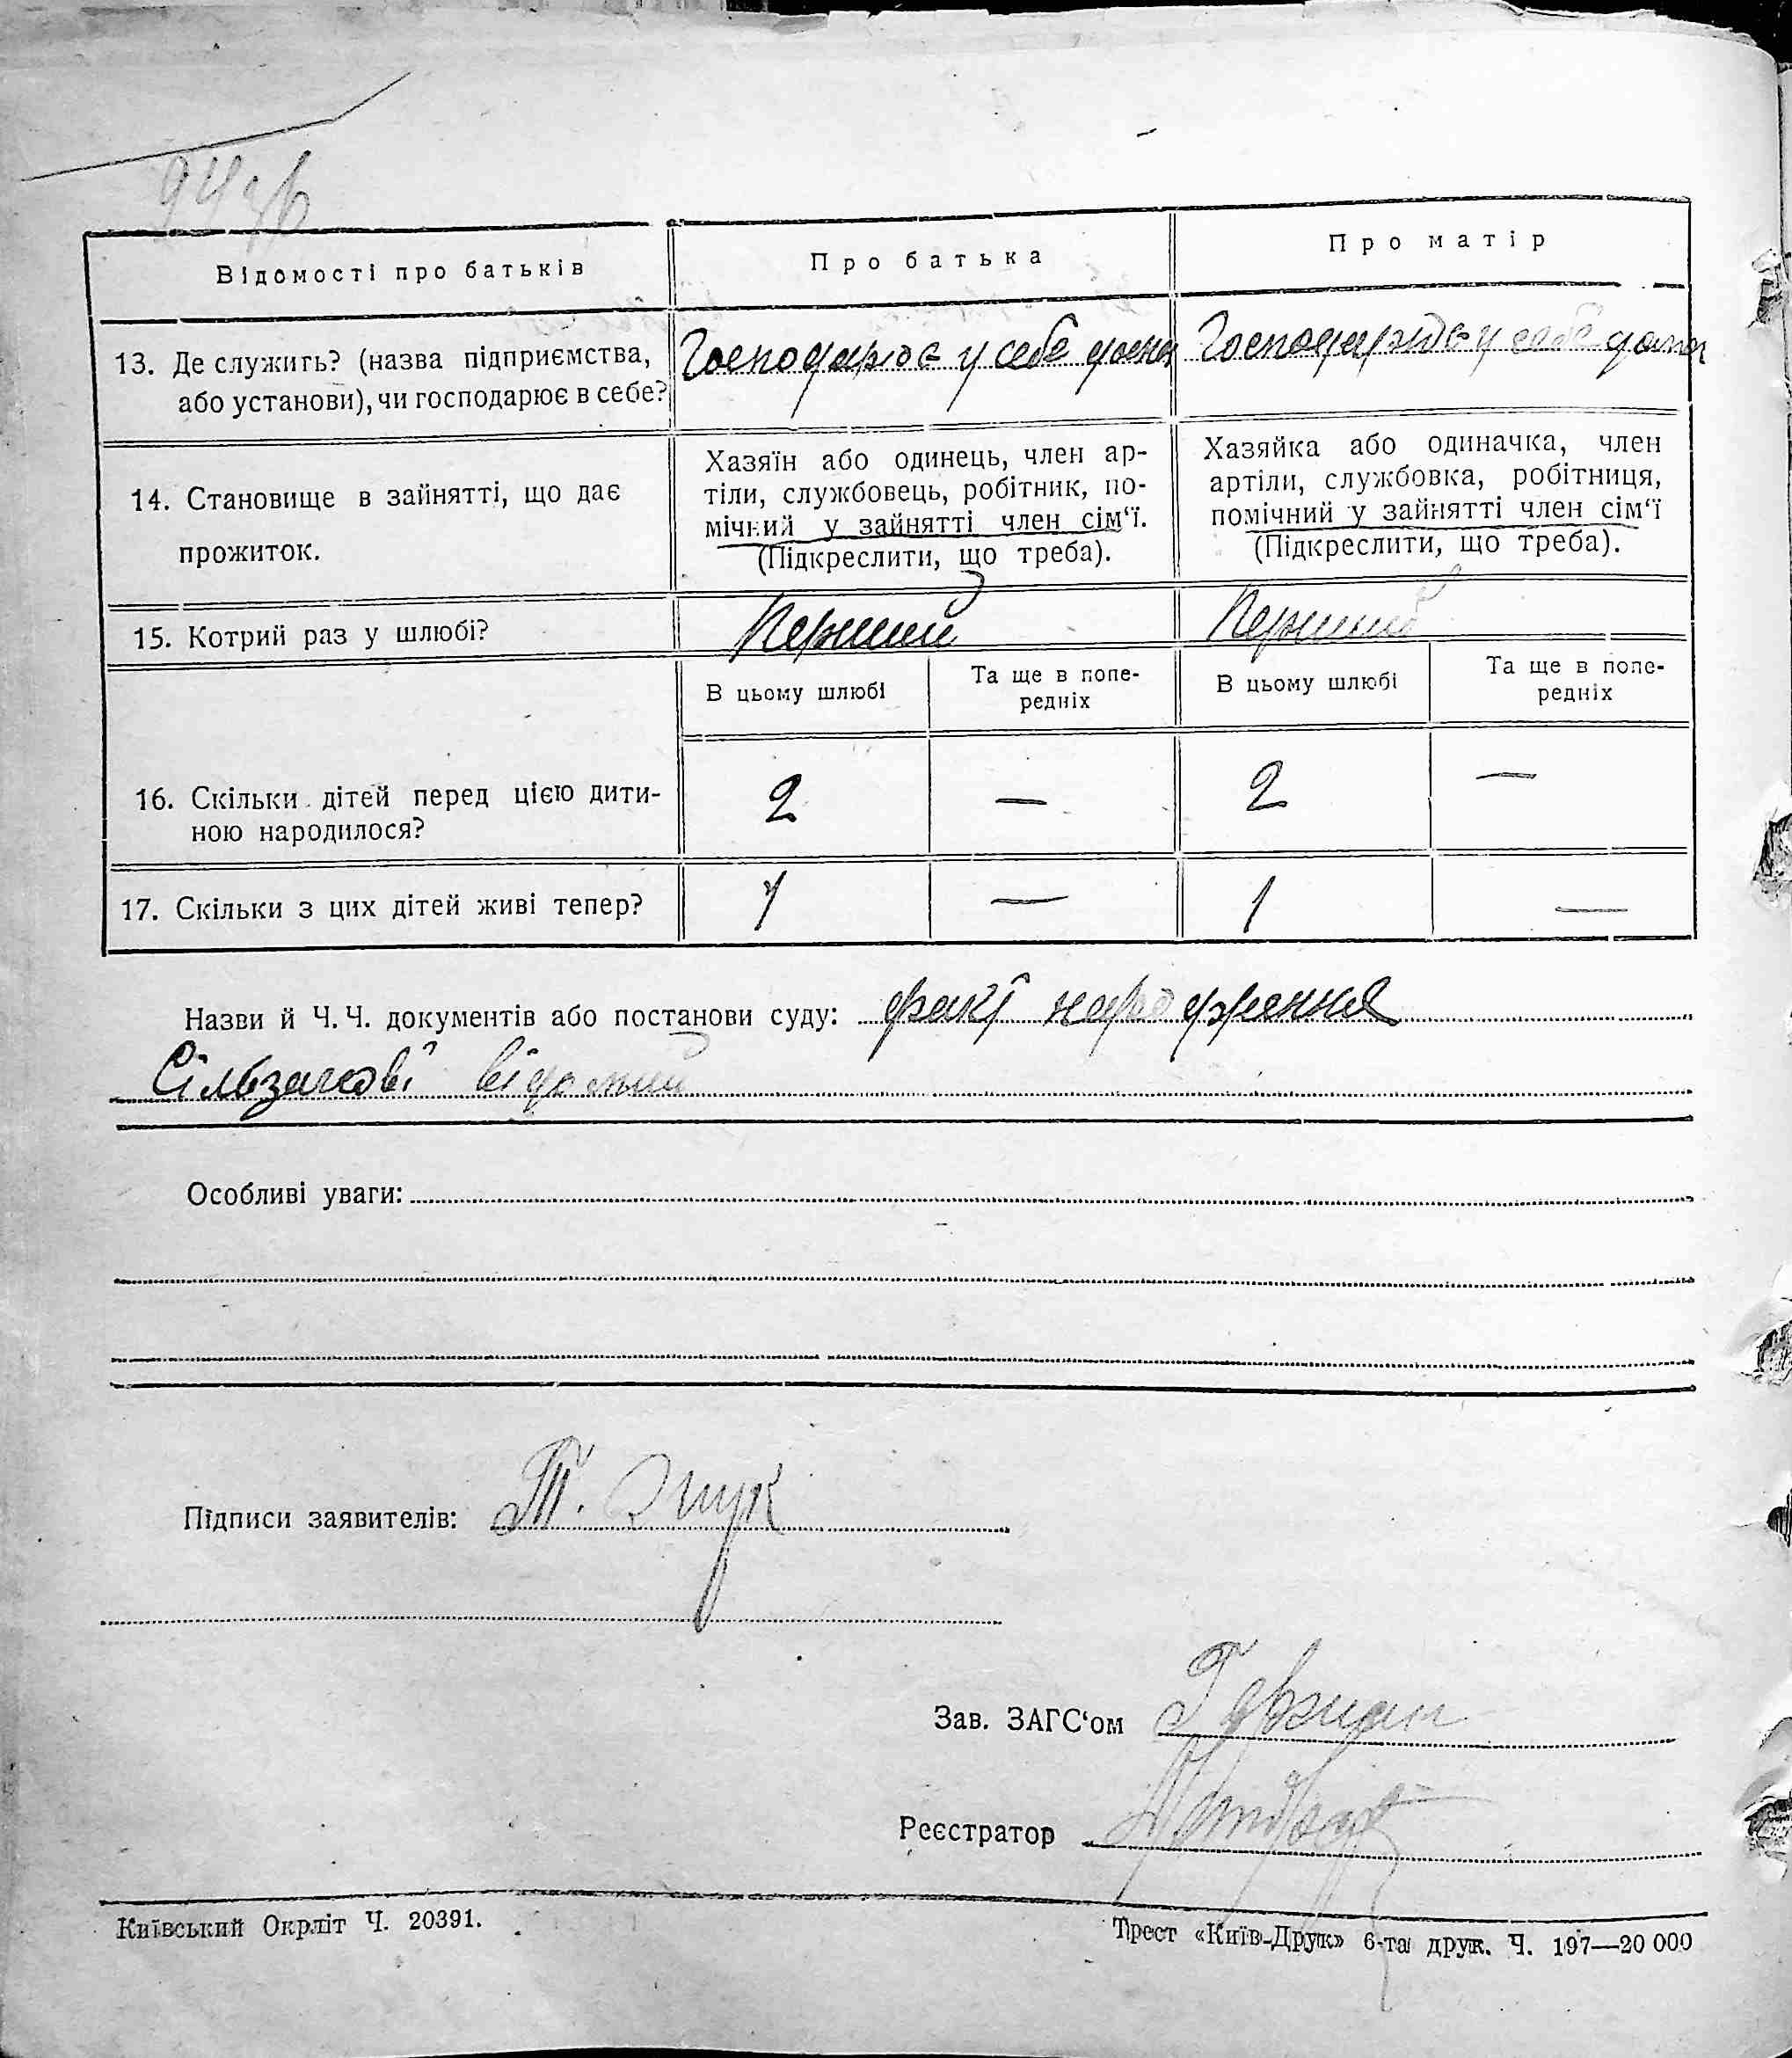 Відомості про батьків
Про батька
Про матір
13. Де служить? (назва підприємства,
або установи), чи господарює в себе?
Господарює у себе дома
Господарює у себе дома
14. Становище в зайнятті, що дає
прожиток.
Хазяїн або одинець, член ар-
тіли, службовець, робітник, по-
мічний у зайнятті член сім‘ї.
(Підкреслити, що треба).
Хазяйка або одиначка, член
артіли, службовка, робітниця,
помічний у зайнятті член сім‘ї
(Підкреслити, що треба).
15. Котрий раз у шлюбі?
Перший
Перший
В цьому шлюбі
Та ще в попе-
редніх
В цьому шлюбі
Та ще в попе-
редніх
16. Скільки дітей перед цією дити-
ною народилося?
2 — 2 —
17. Скільки з цих дітей живі тепер?
1 — 1 —
Назви й Ч.Ч. документів або постанови суду: факт народження
Сільзагсові відомий
Особливі уваги:
Підписи заявителів: Т.
Зав. ЗАГС‘ом
Реєстратор
Київський Окрліт Ч. 20391.
Трест «Київ-Друк» 6-та друк. Ч. 197—20 000